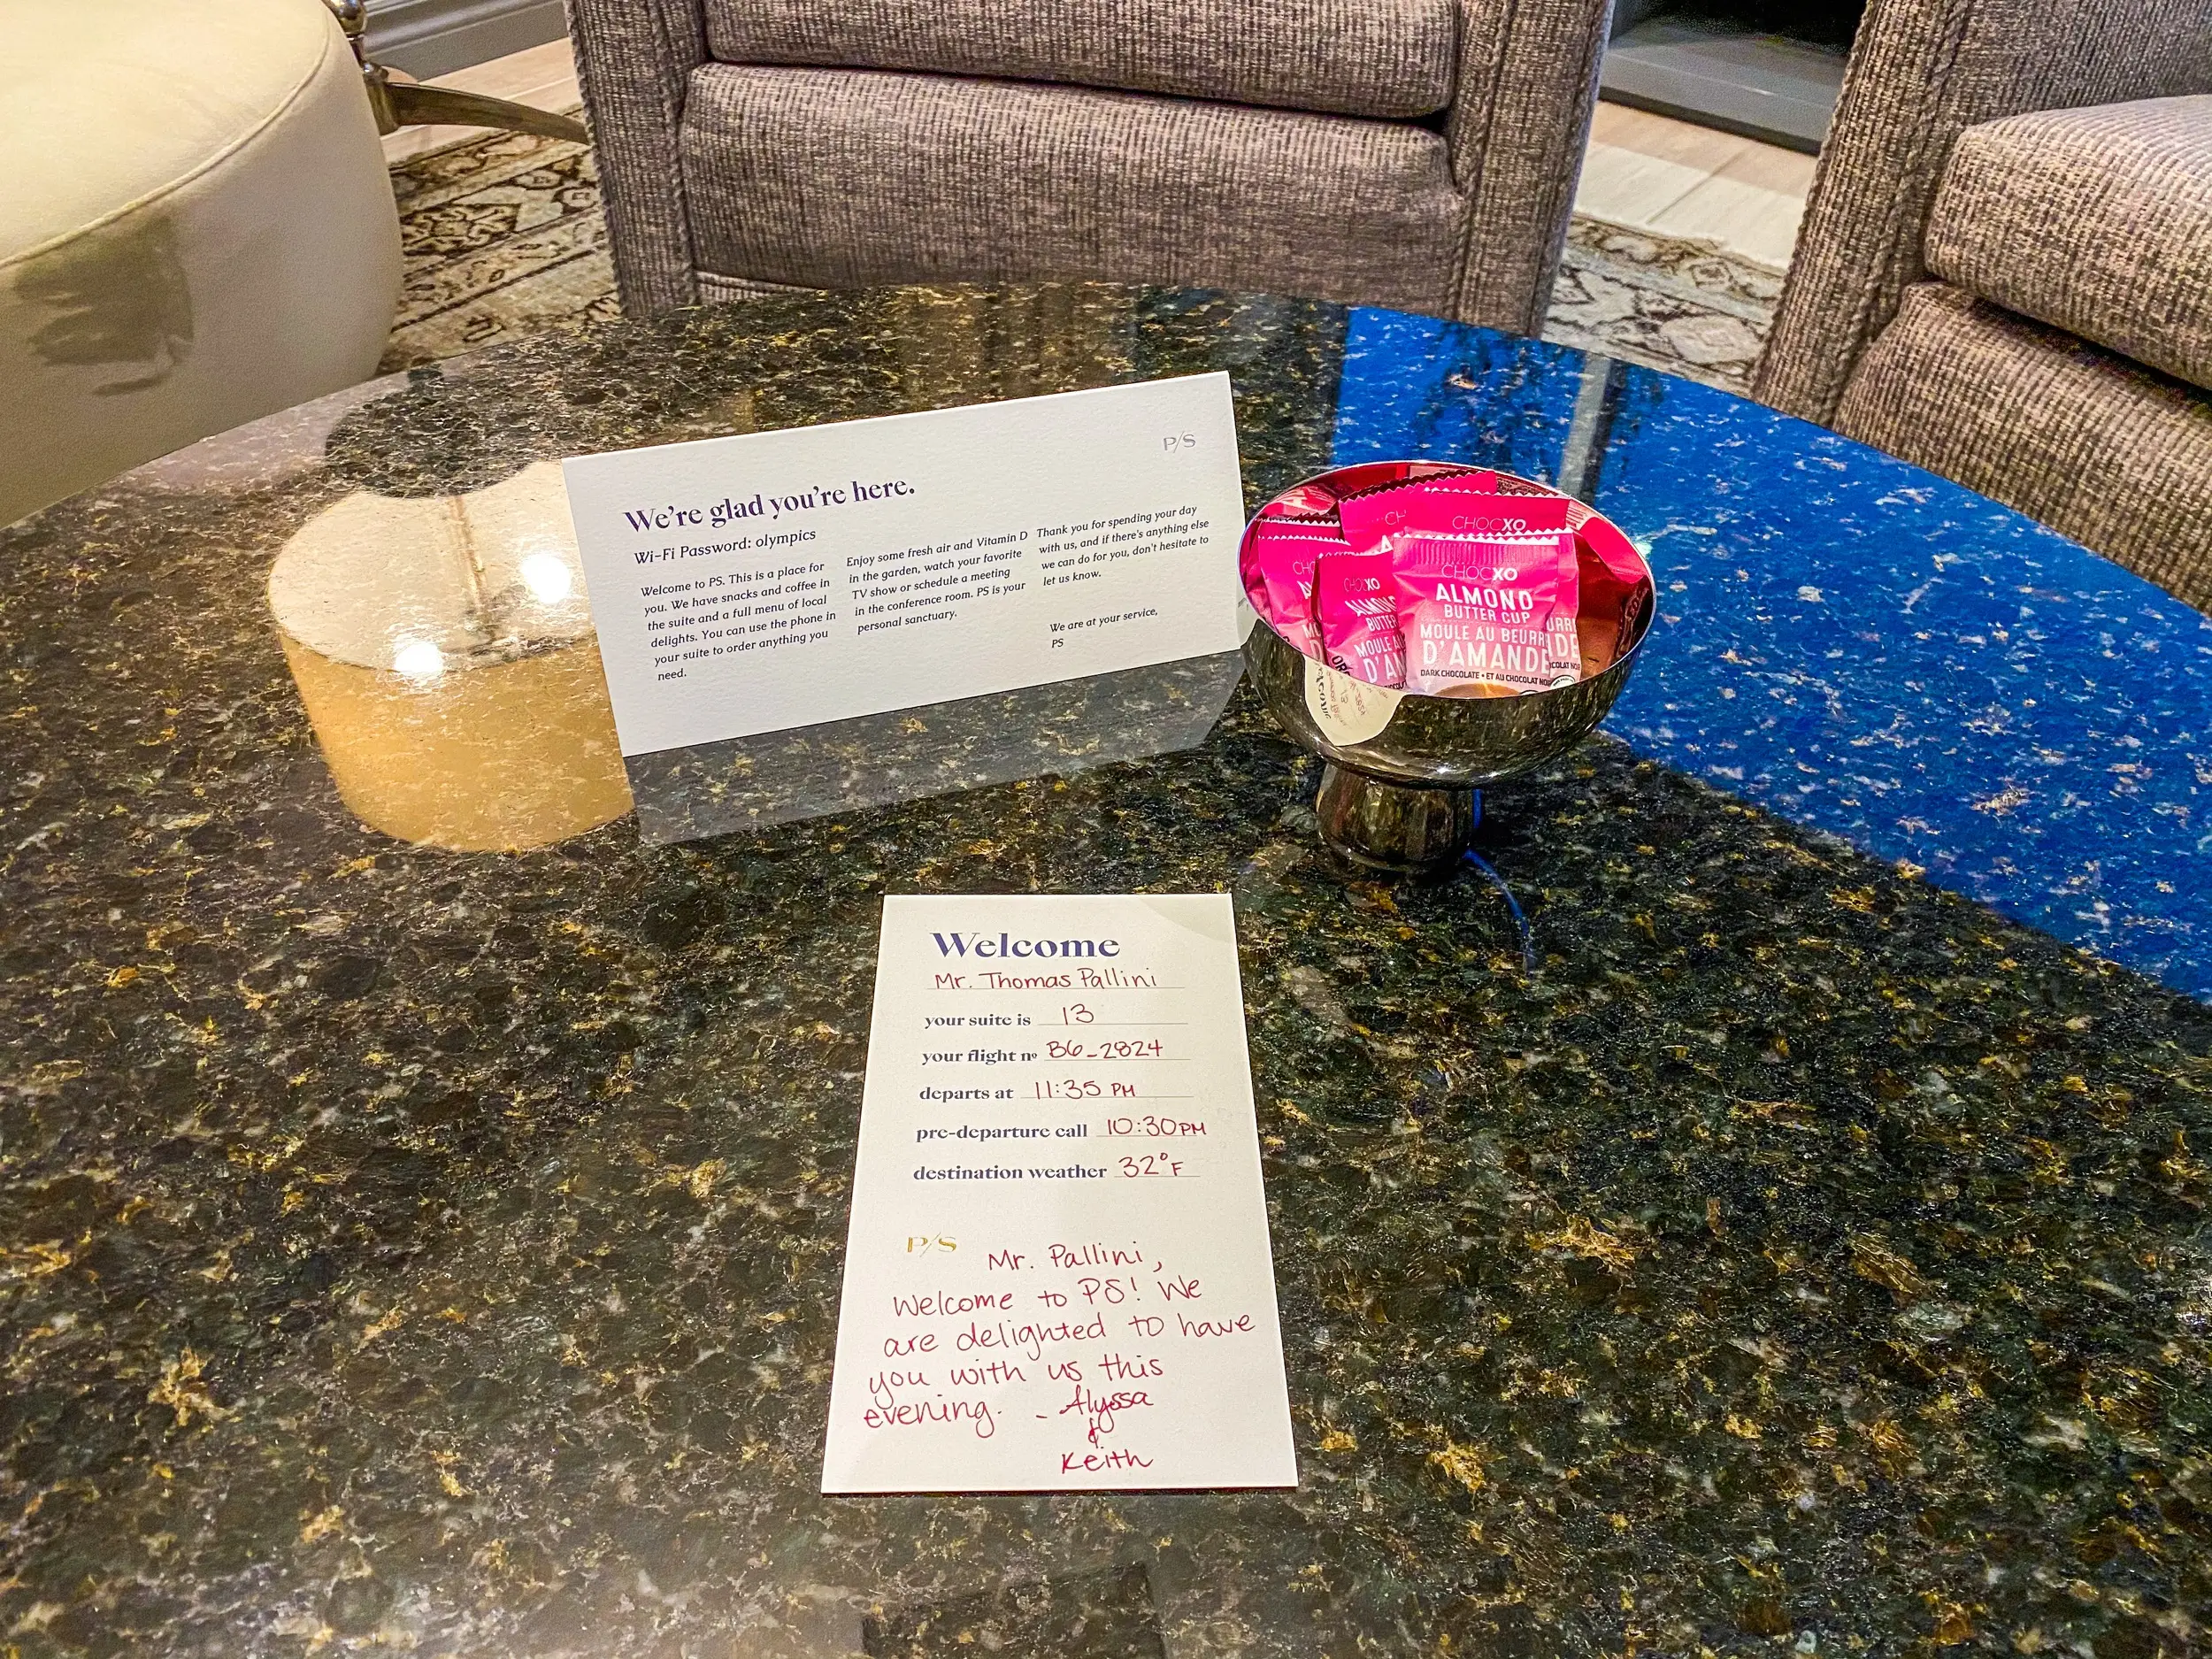 P/S
We're glad you're here.
Wi-Fi Password: olympics
Welcome to PS. This is a place for
you. We have snacks and coffee in
the suite and a full menu of local
delights. You can use the phone in
your suite to order anything you
need.
Enjoy some fresh air and Vitamin D
in the garden, watch your favorite
TV show or schedule a meeting
in the conference room. PS is your
personal sanctuary.
Thank you for spending your day
with us, and if there's anything else
we can do for you, don't hesitate to
let us know.
We are at your service,
PS
CHOCXO
CHOCXO
ALMOND
BUTTER CUP
MOULE AU BEURRE
D'AMANDE
DARK CHOCOLATE • ET AU CHOCOLAT NOIR
CHOCXO
BUTTER
Welcome
Mr. Thomas Pallini
your suite is 13
your flight nº B6-2824
departs at 11:35 PM
pre-departure call 10:30PM
destination weather 32°F
P/S
Mr. Pallini,
Welcome to PS! We
are delighted to have
you with us this
evening. - Alyssa
&
Keith